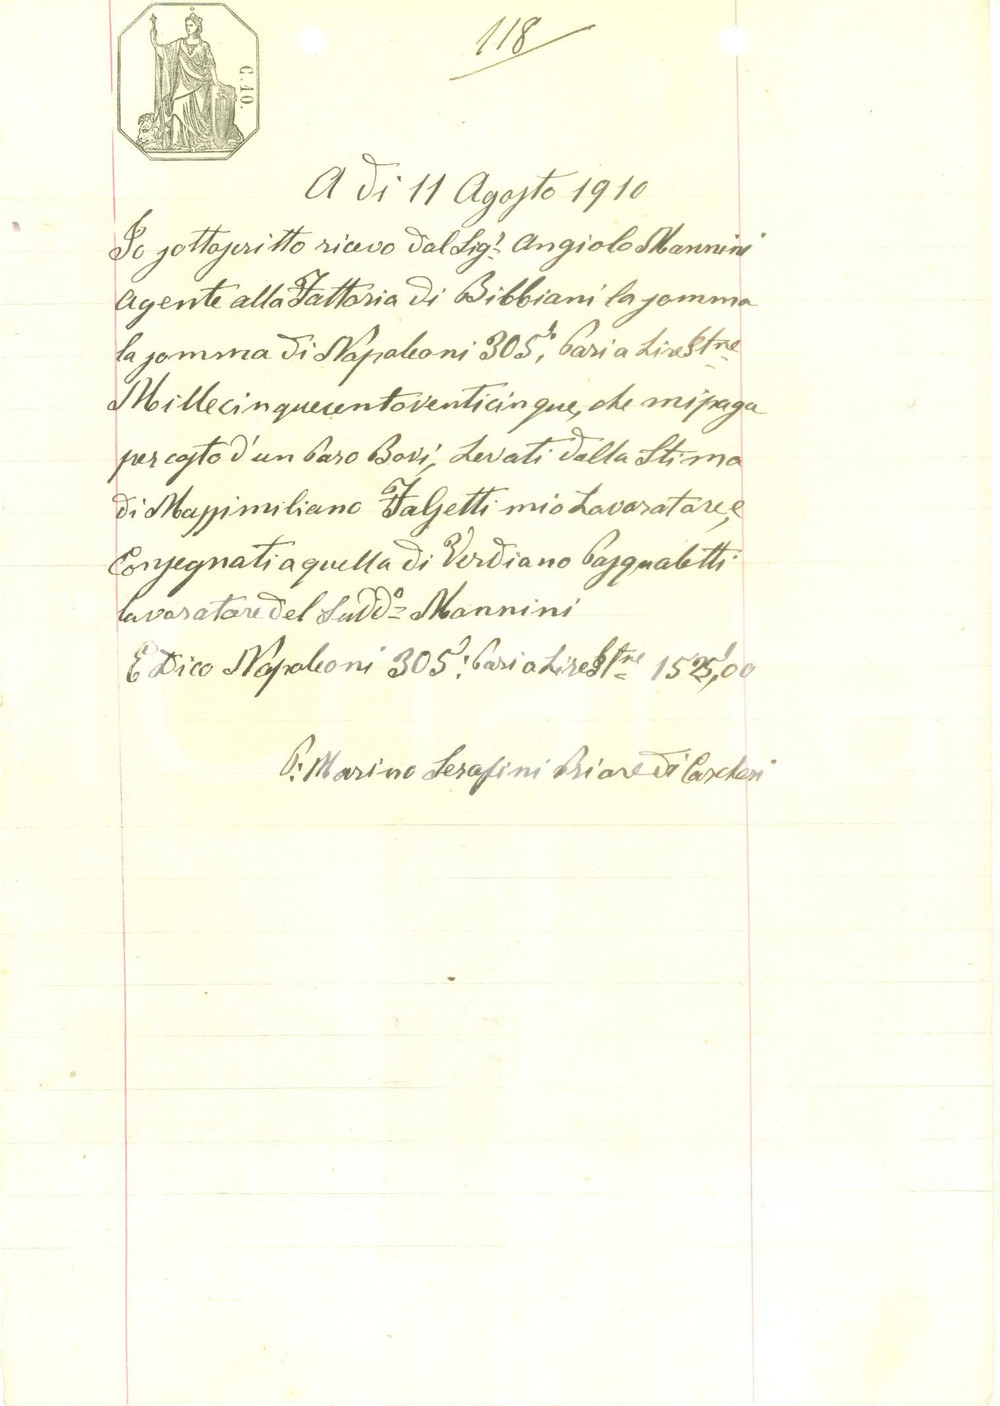 118
C. 10.
A dì 11 Agosto 1910
Io sottoscritto ricevo dal Sig.r Angiolo Mannini
Agente alla Fattoria di Bibbiani la somma
la somma di Napoleoni 305, Pari a Lire Ittne
Millecinquecentoventicinque, che mi paga
per costo d'un Paro Bovi, Levati dalla Stima
di Massimiliano Falsetti mio Lavoratore, e
Consegnati a quella di Verdiano Pasqualetti
lavoratore del Sudd.o Mannini
E Dico Napoleoni 305: Pari a Lire Ittne 1525,00
P: Marino Serafini Priore di